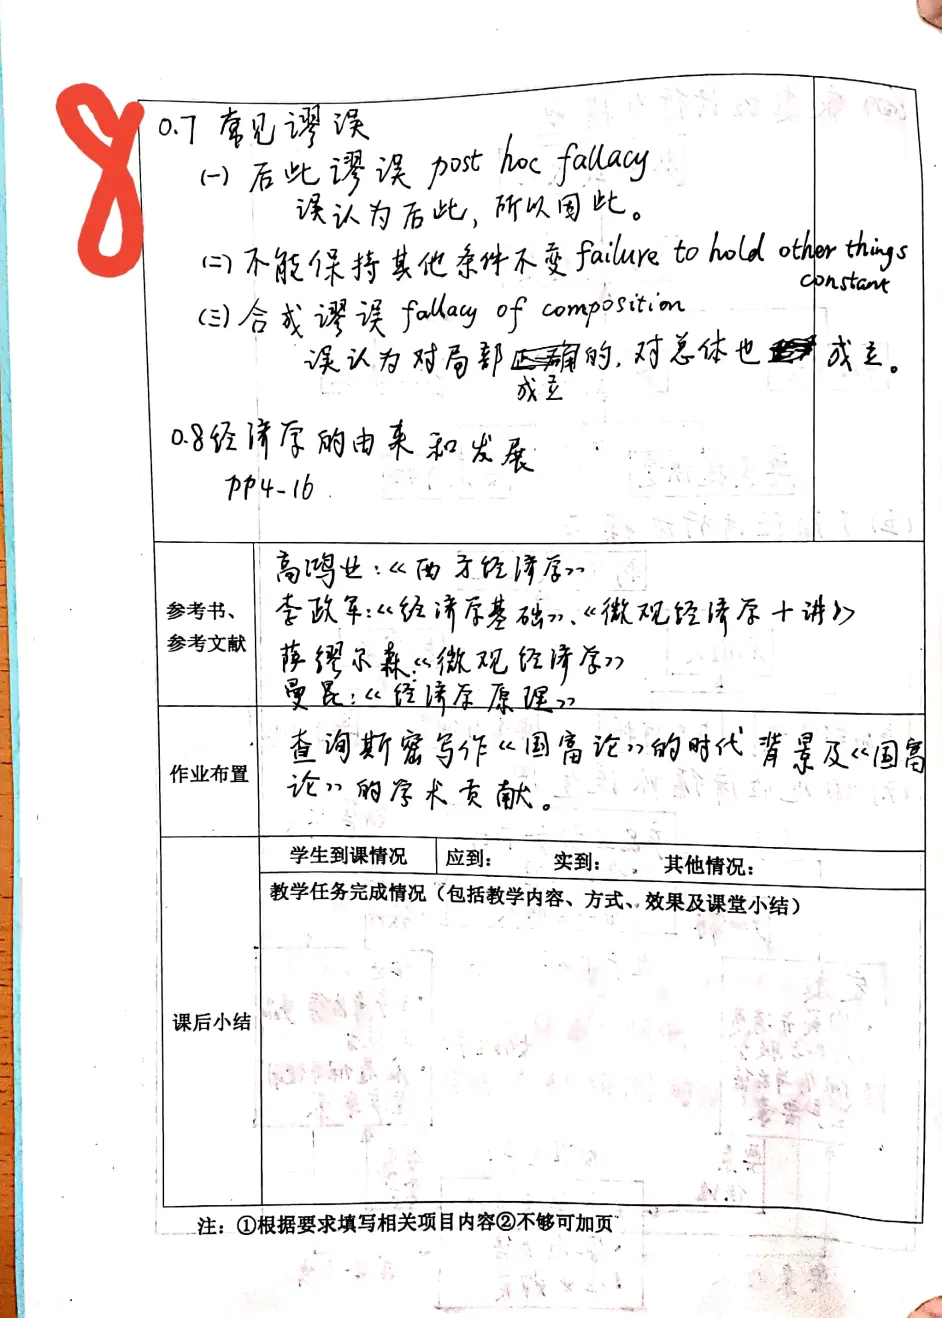 8
0.7 常见谬误
(一) 后此谬误 post hoc fallacy
误认为后此, 所以因此。
(二) 不能保持其他条件不变 failure to hold other things
constant
(三) 合成谬误 fallacy of composition
误认为对局部的, 对总体也 成立。
成立
0.8 经济学的由来和发展
pp4-16
参考书、
参考文献
高鸿业:《西方经济学》
李政军:《经济学基础》、《微观经济学十讲》
萨缪尔森:《微观经济学》
曼昆:《经济学原理》
作业布置
查询斯密写作《国富论》的时代背景及《国富
论》的学术贡献。
学生到课情况 应到: 实到: 其他情况:
教学任务完成情况（包括教学内容、方式、效果及课堂小结）
课后小结
注：①根据要求填写相关项目内容②不够可加页